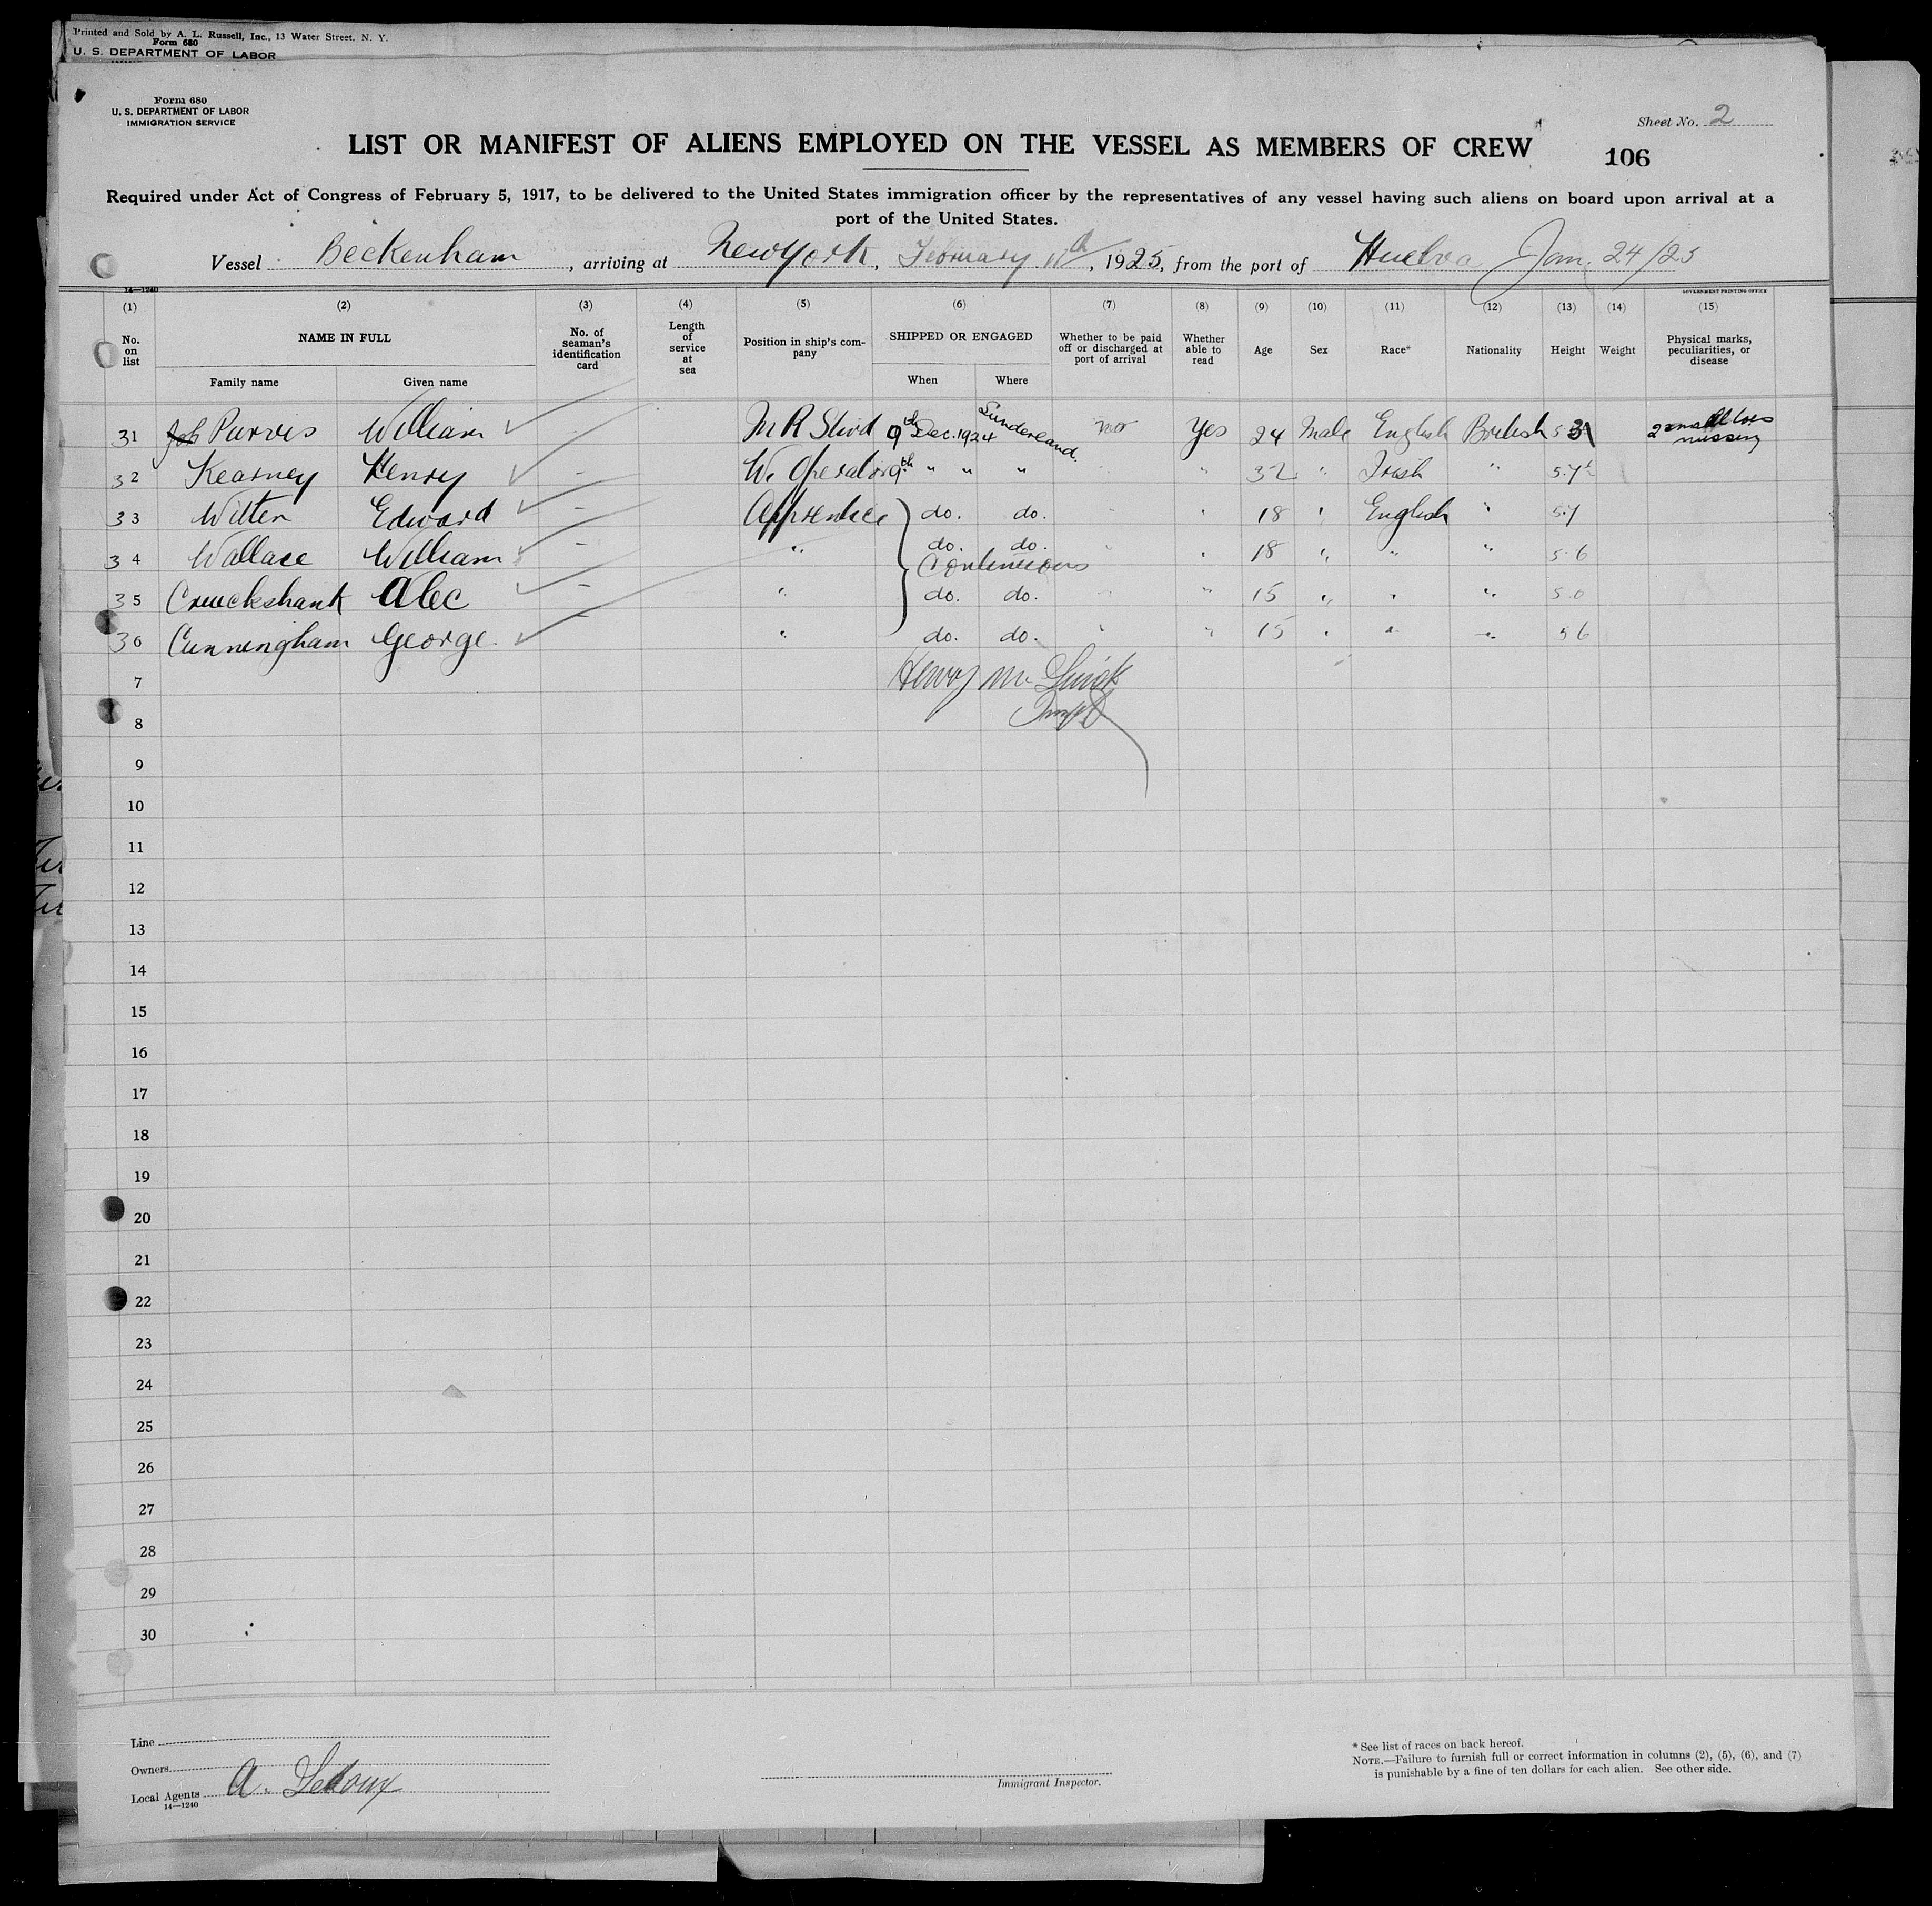 Printed and Sold by A. L. Russell, Inc., 13 Water Street, N. Y.
Form 680
U. S. DEPARTMENT OF LABOR
Form 680
U. S. DEPARTMENT OF LABOR
IMMIGRATION SERVICE
Sheet No. 2
LIST OR MANIFEST OF ALIENS EMPLOYED ON THE VESSEL AS MEMBERS OF CREW
106
Required under Act of Congress of February 5, 1917, to be delivered to the United States immigration officer by the representatives of any vessel having such aliens on board upon arrival at a
port of the United States.
Vessel Beckenham, arriving at New York, February 11th, 1925, from the port of Huelva Jan. 24/25
14—1240
GOVERNMENT PRINTING OFFICE
(1) (2) (3) (4) (5) (6) (7) (8) (9) (10) (11) (12) (13) (14) (15)
No. on list
NAME IN FULL
Family name Given name
No. of seaman's identification card
Length of service at sea
Position in ship's company
SHIPPED OR ENGAGED
When Where
Whether to be paid off or discharged at port of arrival
Whether able to read
Age
Sex
Race*
Nationality
Height
Weight
Physical marks, peculiarities, or disease
31 Purvis William M R Stwd 9th Dec. 1924 Sunderland. no Yes 24 Male English British 5 3 2 small toes missing
32 Kearney Henry — W. Operator 9th " " " " 32 " Irish " 5.7½
33 Witten Edward — Apprentice do. do. " 18 " English " 5.7
34 Wallace William — " do. do. " 18 " " " 5.6
Continuous
35 Cruickshank Alec — " do. do. " 15 " " " 5.0
36 Cunningham George " do. do. " " 15 " " " 5 6
7 Henry
8
9
10
11
12
13
14
15
16
17
18
19
20
21
22
23
24
25
26
27
28
29
30
Line
Owners
Local Agents A. Ledoux
14—1240
Immigrant Inspector.
* See list of races on back hereof.
NOTE.—Failure to furnish full or correct information in columns (2), (5), (6), and (7)
is punishable by a fine of ten dollars for each alien. See other side.